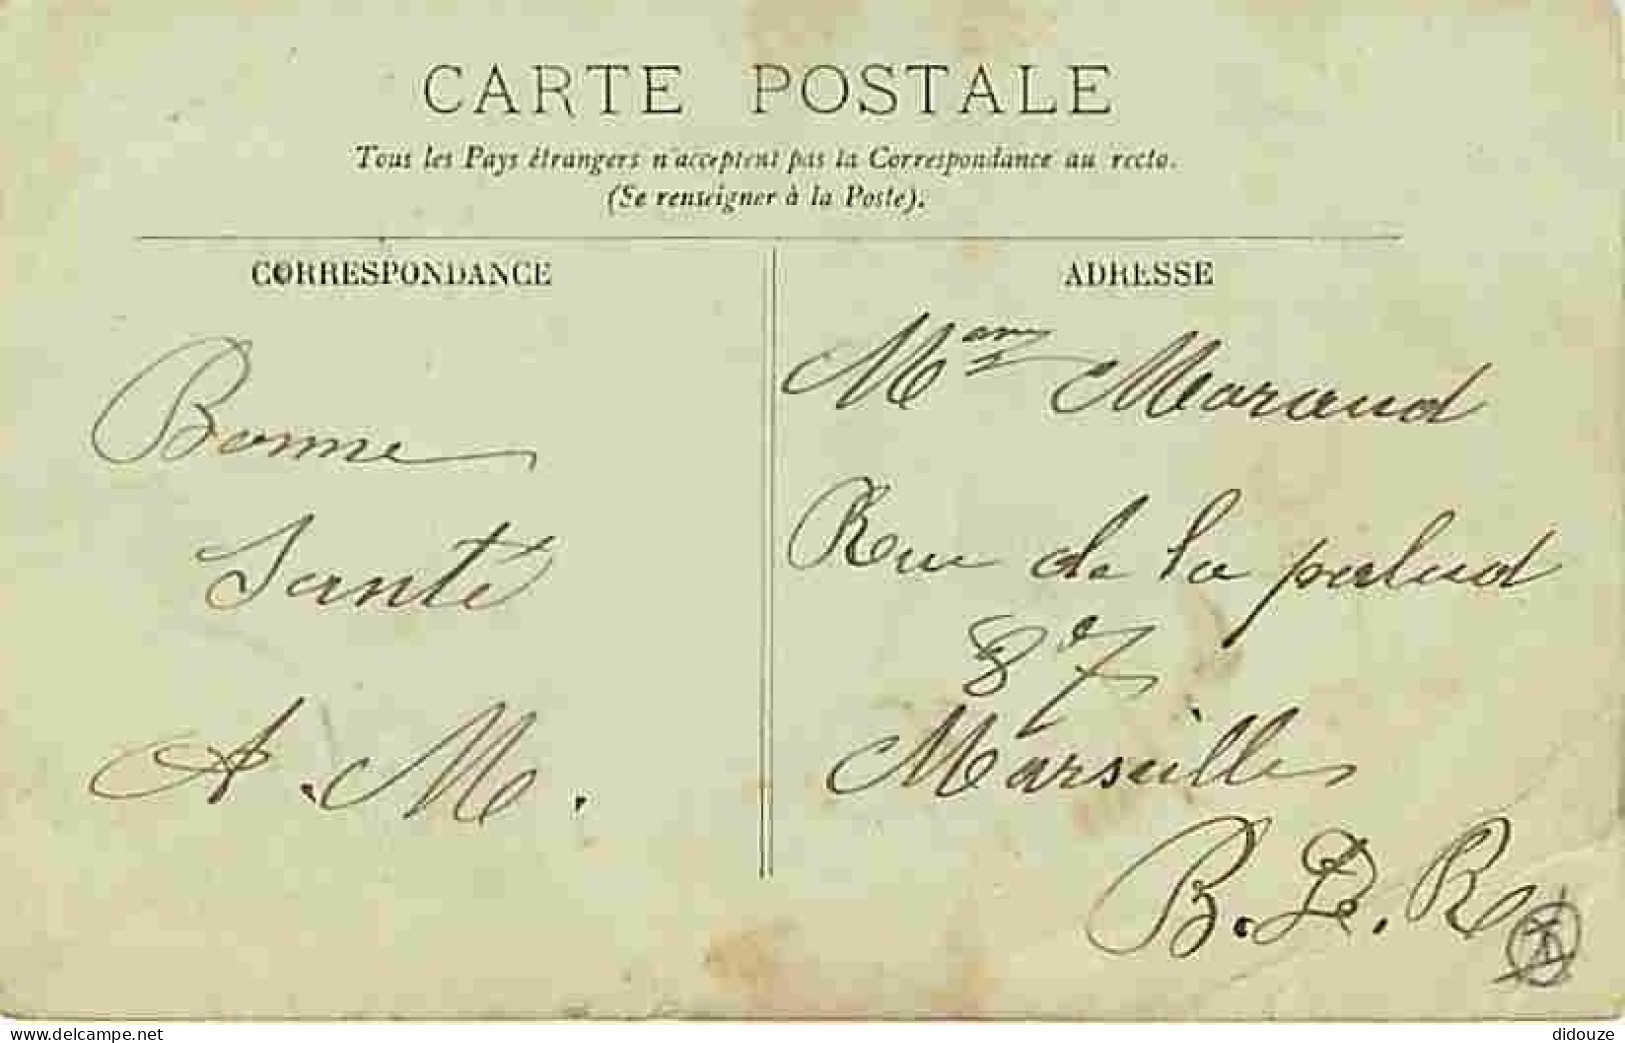 CARTE POSTALE
Tous les Pays étrangers n'acceptent pas la Correspondance au recto.
(Se renseigner à la Poste).
CORRESPONDANCE
Bonne
Santé
A. M.
ADRESSE
Moraud
Rue de la palud
87
Marseille
B. D. R
www.delcampe.net
didouze